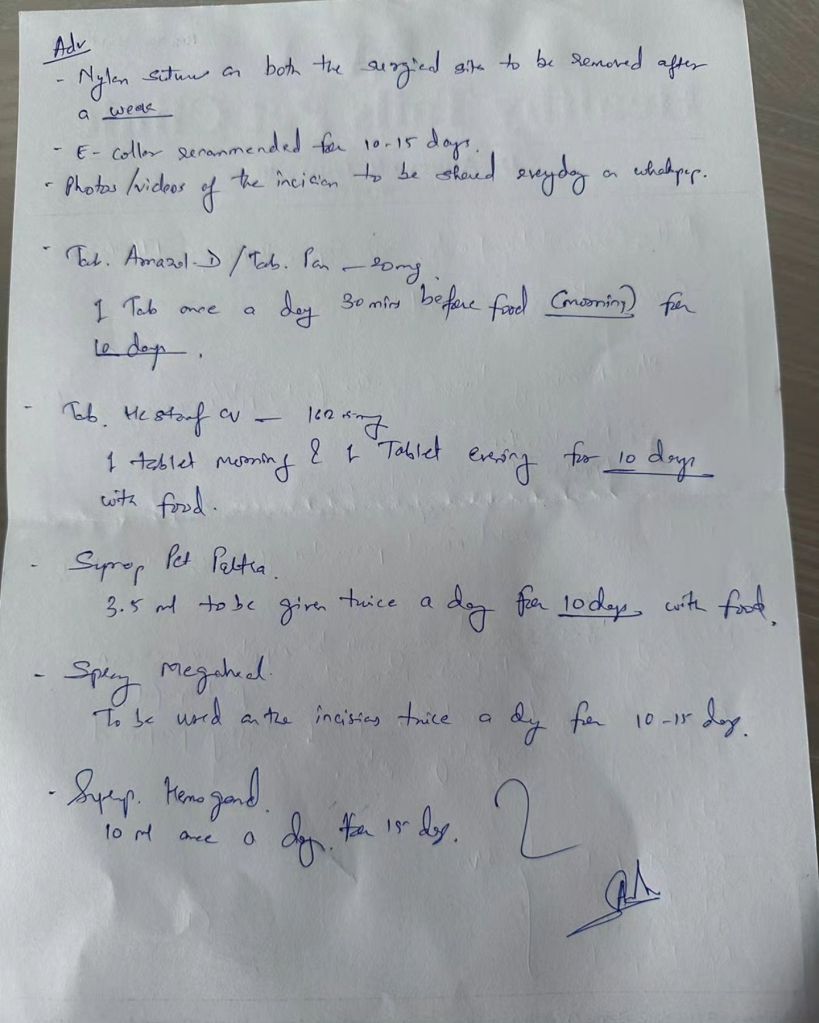 Adv
- Nylon suture on both the surgical site to be removed after
a week
- E-collar recommended for 10-15 days.
- Photos/videos of the incision to be shared everyday on
- Tab. /Tab. Pan - 20mg.
1 Tab once a day 30 mins before food (morning) for
10 days.
- Tab. CV -
1 tablet morning & 1 Tablet evening for 10 days
with food.
- Syrup Pet
3.5 ml to be given twice a day for 10 days, with food.
- Spray Megaheal.
To be used on the incisions twice a day for 10-15 days.
- Syrup.
10 ml once a day. for 15 days.